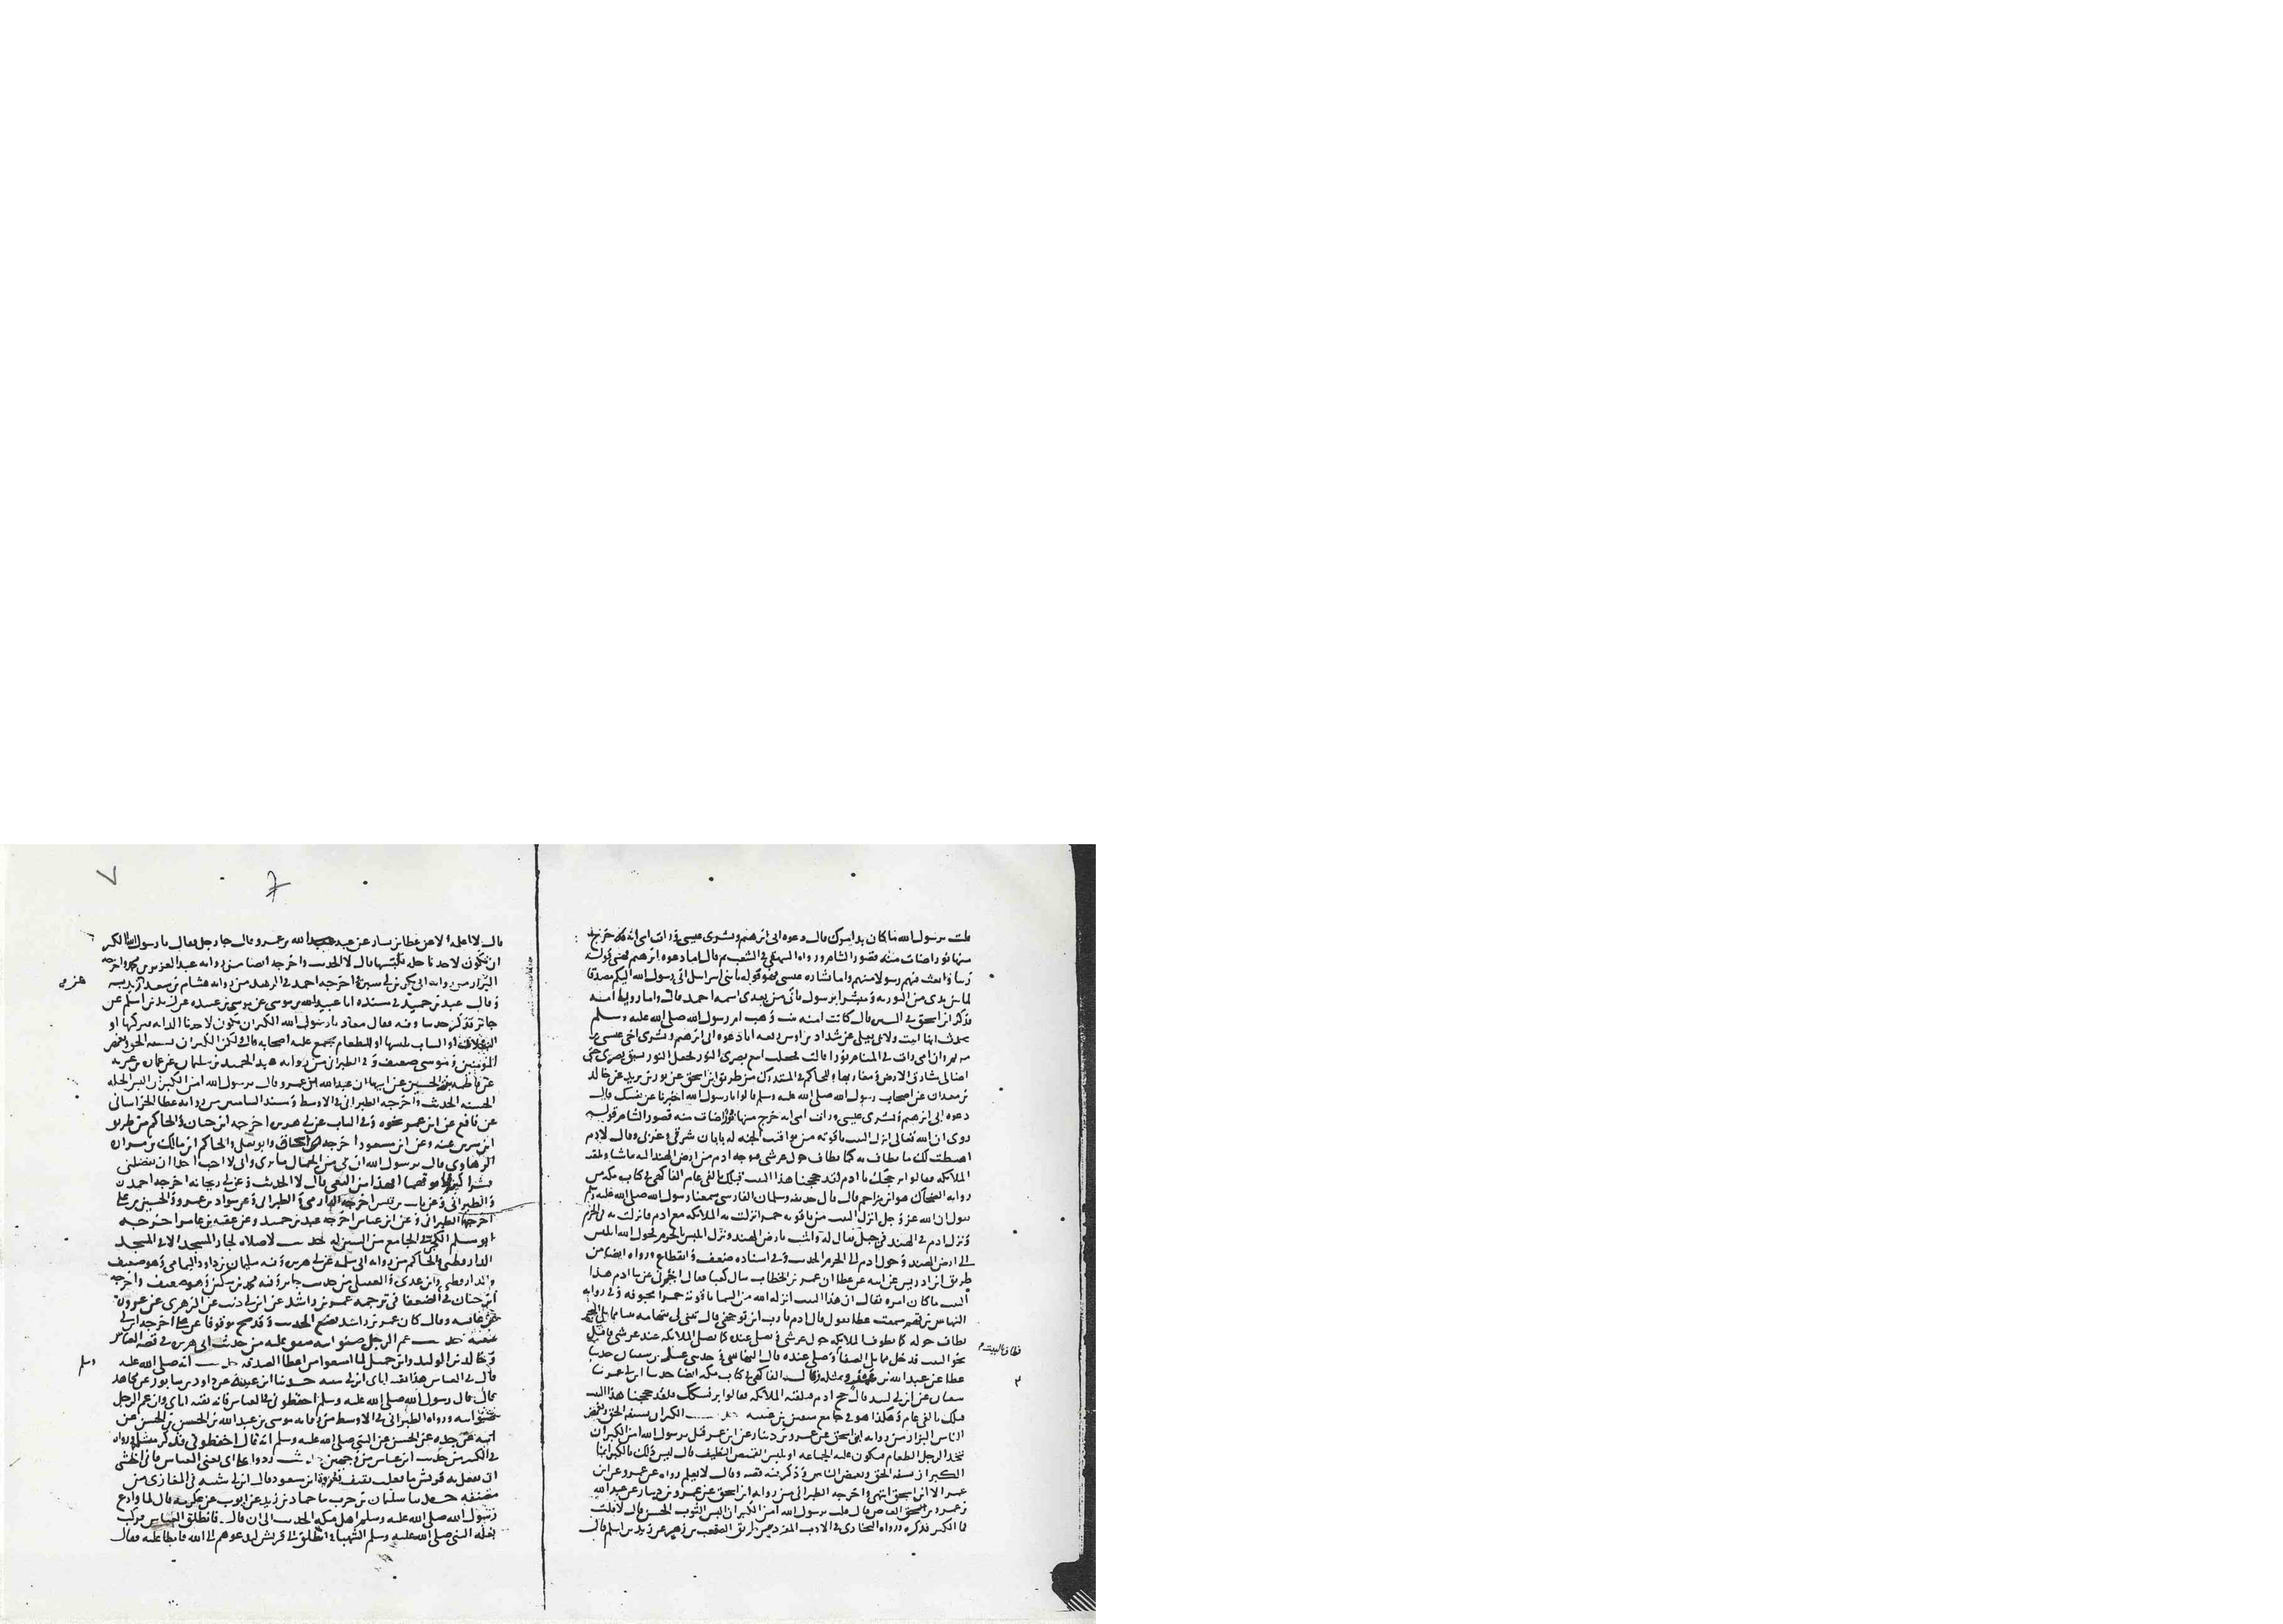 قلت يرسول الله ما كان بدا امرك قال دعوه ابى ابرهيم وبشرى عيسى ورات امى انه خرج
منها نور اضات منه قصور الشام ورواه البيهقى فى الشعب ثم قال اما دعوه ابرهيم فهى قوله
ربنا وابعث فيهم رسولا منهم واما بشاره عيسى فهو قوله يا بنى اسرايل انى رسول الله اليكم مصدقا
لما بين يدى من التوريه ومبشرا برسول ياتى من بعدى اسمه احمد قال واما رويا امنه
فذكر ابن اسحق فى السير قال كانت امنه بنت وهب ام رسول الله صلى الله عليه وسلم
عن شداد بن اوس رفعه انا دعوه ابى ابرهيم وبشرى اخى عيسى بن
مريم وان امى رات فى المنام نورا قالت فجعلت اتبع بصرى النور فجعل النور يسبق بصرى حتى
اضا لى مشارق الارض ومغاربها وللحاكم فى المستدرك من طريق ابن اسحق عن ثور بن يزيد عن خالد
بن معدان عن اصحاب رسول الله صلى الله عليه وسلم قالوا يا رسول الله اخبرنا عن نفسك قال
دعوه ابى ابرهيم وبشرى عيسى ورات امى انه خرج منها نور اضات منه قصور الشام قوله
روى ان الله تعالى انزل البيت ياقوته من يواقيت الجنه له بابان شرقى وغربى وقال لادم
اهبطت لك ما يطاف به كما يطاف حول عرشى فتوجه ادم من ارض الهند اليه ماشيا وتلقته
الملايكه فقالوا بر حجك يا ادم لقد حججنا هذا البيت قبلك بالفى عام الفاكهى فى كتاب مكه من
روايه الضحاك هو ابن مزاحم قال قال حذيفه وسلمان الفارسى سمعنا رسول الله صلى الله عليه وسلم
يقول ان الله عز وجل انزل البيت من ياقوته حمرا نزلت به الملايكه مع ادم فانزلت به فى الحرم
ونزل ادم فى الهند فى جبل يقال له بارض الهند ونزل ابليس بالحرم فحول الله ابليس
الى ارض الهند وحول ادم الى الحرم الحديث وفى اسناده ضعف وانقطاع ورواه ايضا من
طريق ابن ادريس عن ابيه عن عطا ان عمر بن الخطاب سال كعبا فقال اخبرنى عن بنا ادم هذا
البيت ما كان امره فقال ان هذا البيت انزله الله من السما ياقوته حمرا مجوفه وفى روايه
النهاس بن قهم سمعت عطا يقول قال ادم يا رب
يطاف حوله كما يطوف الملايكه حول عرشى ويصلى عنده كما يصلى الملايكه عند عرشى فاقبل
نحو البيت فدخل مما يلى الصفا وصلى عنده قال
وقال الفاكهى فى كتاب مكه ايضا حدثنا ابن ابى عمر نا
سفيان عن ابن ابى لبيد قال حج ادم فتلقته الملايكه فقالوا بر نسكك فلقد حججنا هذا البيت
قبلك بالفى عام وهكذا هو فى جامع سفين بن عيينه حديث الكبر ان تسفه الحق وتغمص
الناس البزار من روايه ابن اسحق عن عمرو بن دينار عن ابن عمر قيل يرسول الله امن الكبر ان
يتخذ الرجل الطعام فيكون عليه الجماعه او يلبس القميص النظيف قال ليس ذلك بالكبر انما
الكبر ان تسفه الحق وتغمص الناس وذكر فيه قصه وقال لا نعلم رواه عن عمرو عن ابن
عمر الا ابن اسحق انتهى واخرجه الطبرانى من روايه ابن اسحق عن عمرو بن دينار عن عبد الله
بن عمرو بن العاص قال قلت يرسول الله امن الكبر ان البس الثوب الحسن قال لا قلت
فما الكبر فذكره ورواه البخارى فى الادب المفرد من طريق الصقعب بن زهير عن زيد بن اسلم قال
فطاف بالبيت
قال لا اعلمه الا عن عطا بن يسار عن عبد الله بن عمرو قال جا رجل فقال يا رسول الله الكبر
ان يكون لاحدنا حله يلبسها قال لا الحديث واخرجه ايضا من روايه عبد العزيز بن محمد واخرجه
البزار من روايه ابى بكر بن ابى سبره واخرجه احمد فى الزهد من روايه هشام بن سعد
وقال عبد بن حميد فى مسنده انا عبيد الله بن موسى عن موسى بن عبيده عن زيد بن اسلم عن
جابر فذكر حديثا وفيه فقال معاذ يا رسول الله الكبر ان يكون لاحدنا الدابه يركبها او
النعلان او الثياب يلبسها او الطعام يجمع عليه اصحابه قال لا ولكن الكبر ان تسفه الحق وتغمص
المومنين وموسى ضعيف وفى الطبرانى من روايه عبد الحميد بن سليمان عن عماره بن غزيه
عن فاطمه بنت الحسين عن ابيها ان عبد الله بن عمرو قال يرسول الله امن الكبر ان البس الحله
الحسنه الحديث واخرجه الطبرانى فى الاوسط ومسند الشاميين من روايه عطا الخراسانى
عن نافع عن ابن عمر نحوه وفى الباب عن ابى هريره اخرجه ابن حبان والحاكم من طريق
ابن سيرين عنه وعن ابن مسعود اخرجه اسحاق وابو يعلى والحاكم ان مالك بن مراره
الرهاوى قال يرسول الله ان لى من الجمال ما ترى وانى لا احب احدا ان يفضلنى
بشراكين فما فوقهما افهذا من البغى قال لا الحديث وعن ابى ريحانه اخرجه احمد
والطبرانى وعن ثابت بن قيس اخرجه الطبرانى وعن سواد بن عمرو والحسين بن على
اخرجها الطبرانى وعن ابن عباس اخرجه عبد بن حميد وعن عقبه بن عامر اخرجه
ابو مسلم الكجى فى الجامع من السنن له حديث لا صلاه لجار المسجد الا فى المسجد
الدارقطنى والحاكم من روايه ابى سلمه عن ابى هريره وفيه سليمان بن داود اليمامى وهو ضعيف
والدارقطنى وابن عدى والعقيلى من حديث جابر وفيه محمد بن سكين وهو ضعيف واخرجه
ابن حبان فى الضعفا فى ترجمه عمر بن راشد عن ابن ابى ذئب عن الزهرى عن عروه
عن عايشه وقال كان عمر بن راشد يضع الحديث وقد صح موقوفا عن على اخرجه ابن ابى
شيبه حديث عم الرجل صنو ابيه متفق عليه من حديث ابى هريره فى قصه العباس
وخالد بن الوليد وابن جميل لما امتنعوا من اعطا الصدقه حديث انه صلى الله عليه
قال فى العباس هذا بقيه اباى ابن ابى شيبه حدثنا ابن عيينه عن داود بن سابور عن مجاهد
قال قال رسول الله صلى الله عليه وسلم احفظونى فى العباس فانه بقيه اباى وان عم الرجل
صنو ابيه ورواه الطبرانى فى الاوسط من روايه موسى بن عبد الله بن الحسن بن الحسن عن
ابيه عن جده عن الحسن عن النبى صلى الله عليه وسلم انه قال احفظونى فذكر مثله ورواه
فى الكبير من حديث ابن عباس من وجهين حديث ردوا على ابى يعنى العباس فانى اخشى
ان تفعل به قريش ما فعلت ثقيف بعروه ابن مسعود قال ابن ابى شيبه فى المغازى من
مصنفه حدثنا سليمان بن حرب نا حماد بن زيد عن ايوب عن عكرمه قال لما وادع
رسول الله صلى الله عليه وسلم اهل مكه الحديث الى ان قال فانطلق العباس فركب
بغله النبى صلى الله عليه وسلم الشهبا وانطلق الى قريش ليدعوهم الى الله فابطا عليه فقال
وسلم
٧
7